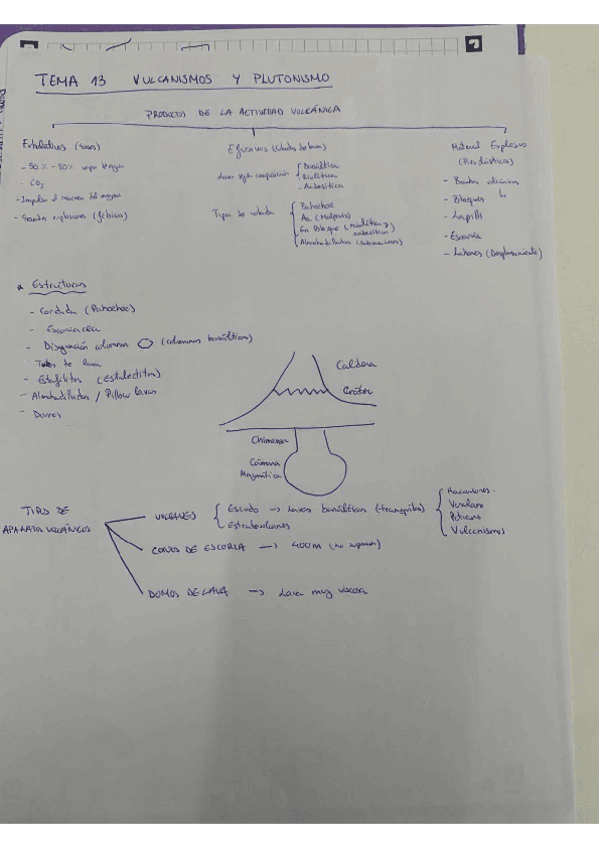 TEMA 13 VULCANISMOS Y PLUTONISMO
PRODUCTOS DE LA ACTIVIDAD VULCÁNICA
Exhalativos (Gases)
- 50% - 80% vapor de agua
- CO2
- Impulsa el ascenso del magma
- Grandes explosiones (flebianas)
Efusivos (Coladas de lava)
Lavas según composición
- Basáltica
- Riolítica
- Andesítica
Tipos de colada
Pahoehoe
Aa (Malpaís)
En Bloque (riolítica y andesítica)
Almohadilladas (submarinas)
Material Explosivo
(Piroclásticos)
- Bombas volcánicas
- Bloques
- Lapilli
- Escoria
- Lahares (Desplazamiento)
* Estructuras
- Cordada (Pahoehoe)
- Escoriacea
- Disyunción columnar (columnas basálticas)
Tubos de lava
- Estafilitos (Estalactitas)
- Almohadilladas / Pillow lavas
- Domos
Caldera
Cráter
Chimenea
Cámara
Magmática
TIPO DE
APARATOS VOLCÁNICOS
VOLCANES
Escudo → Lavas basálticas (tranquilas)
Estratovolcanes
Hawaianos
Vesubiano
Peleano
Vulcanismos
CONOS DE ESCORIA → 400m (no superan)
DOMOS DE LAVA → Lava muy viscosa